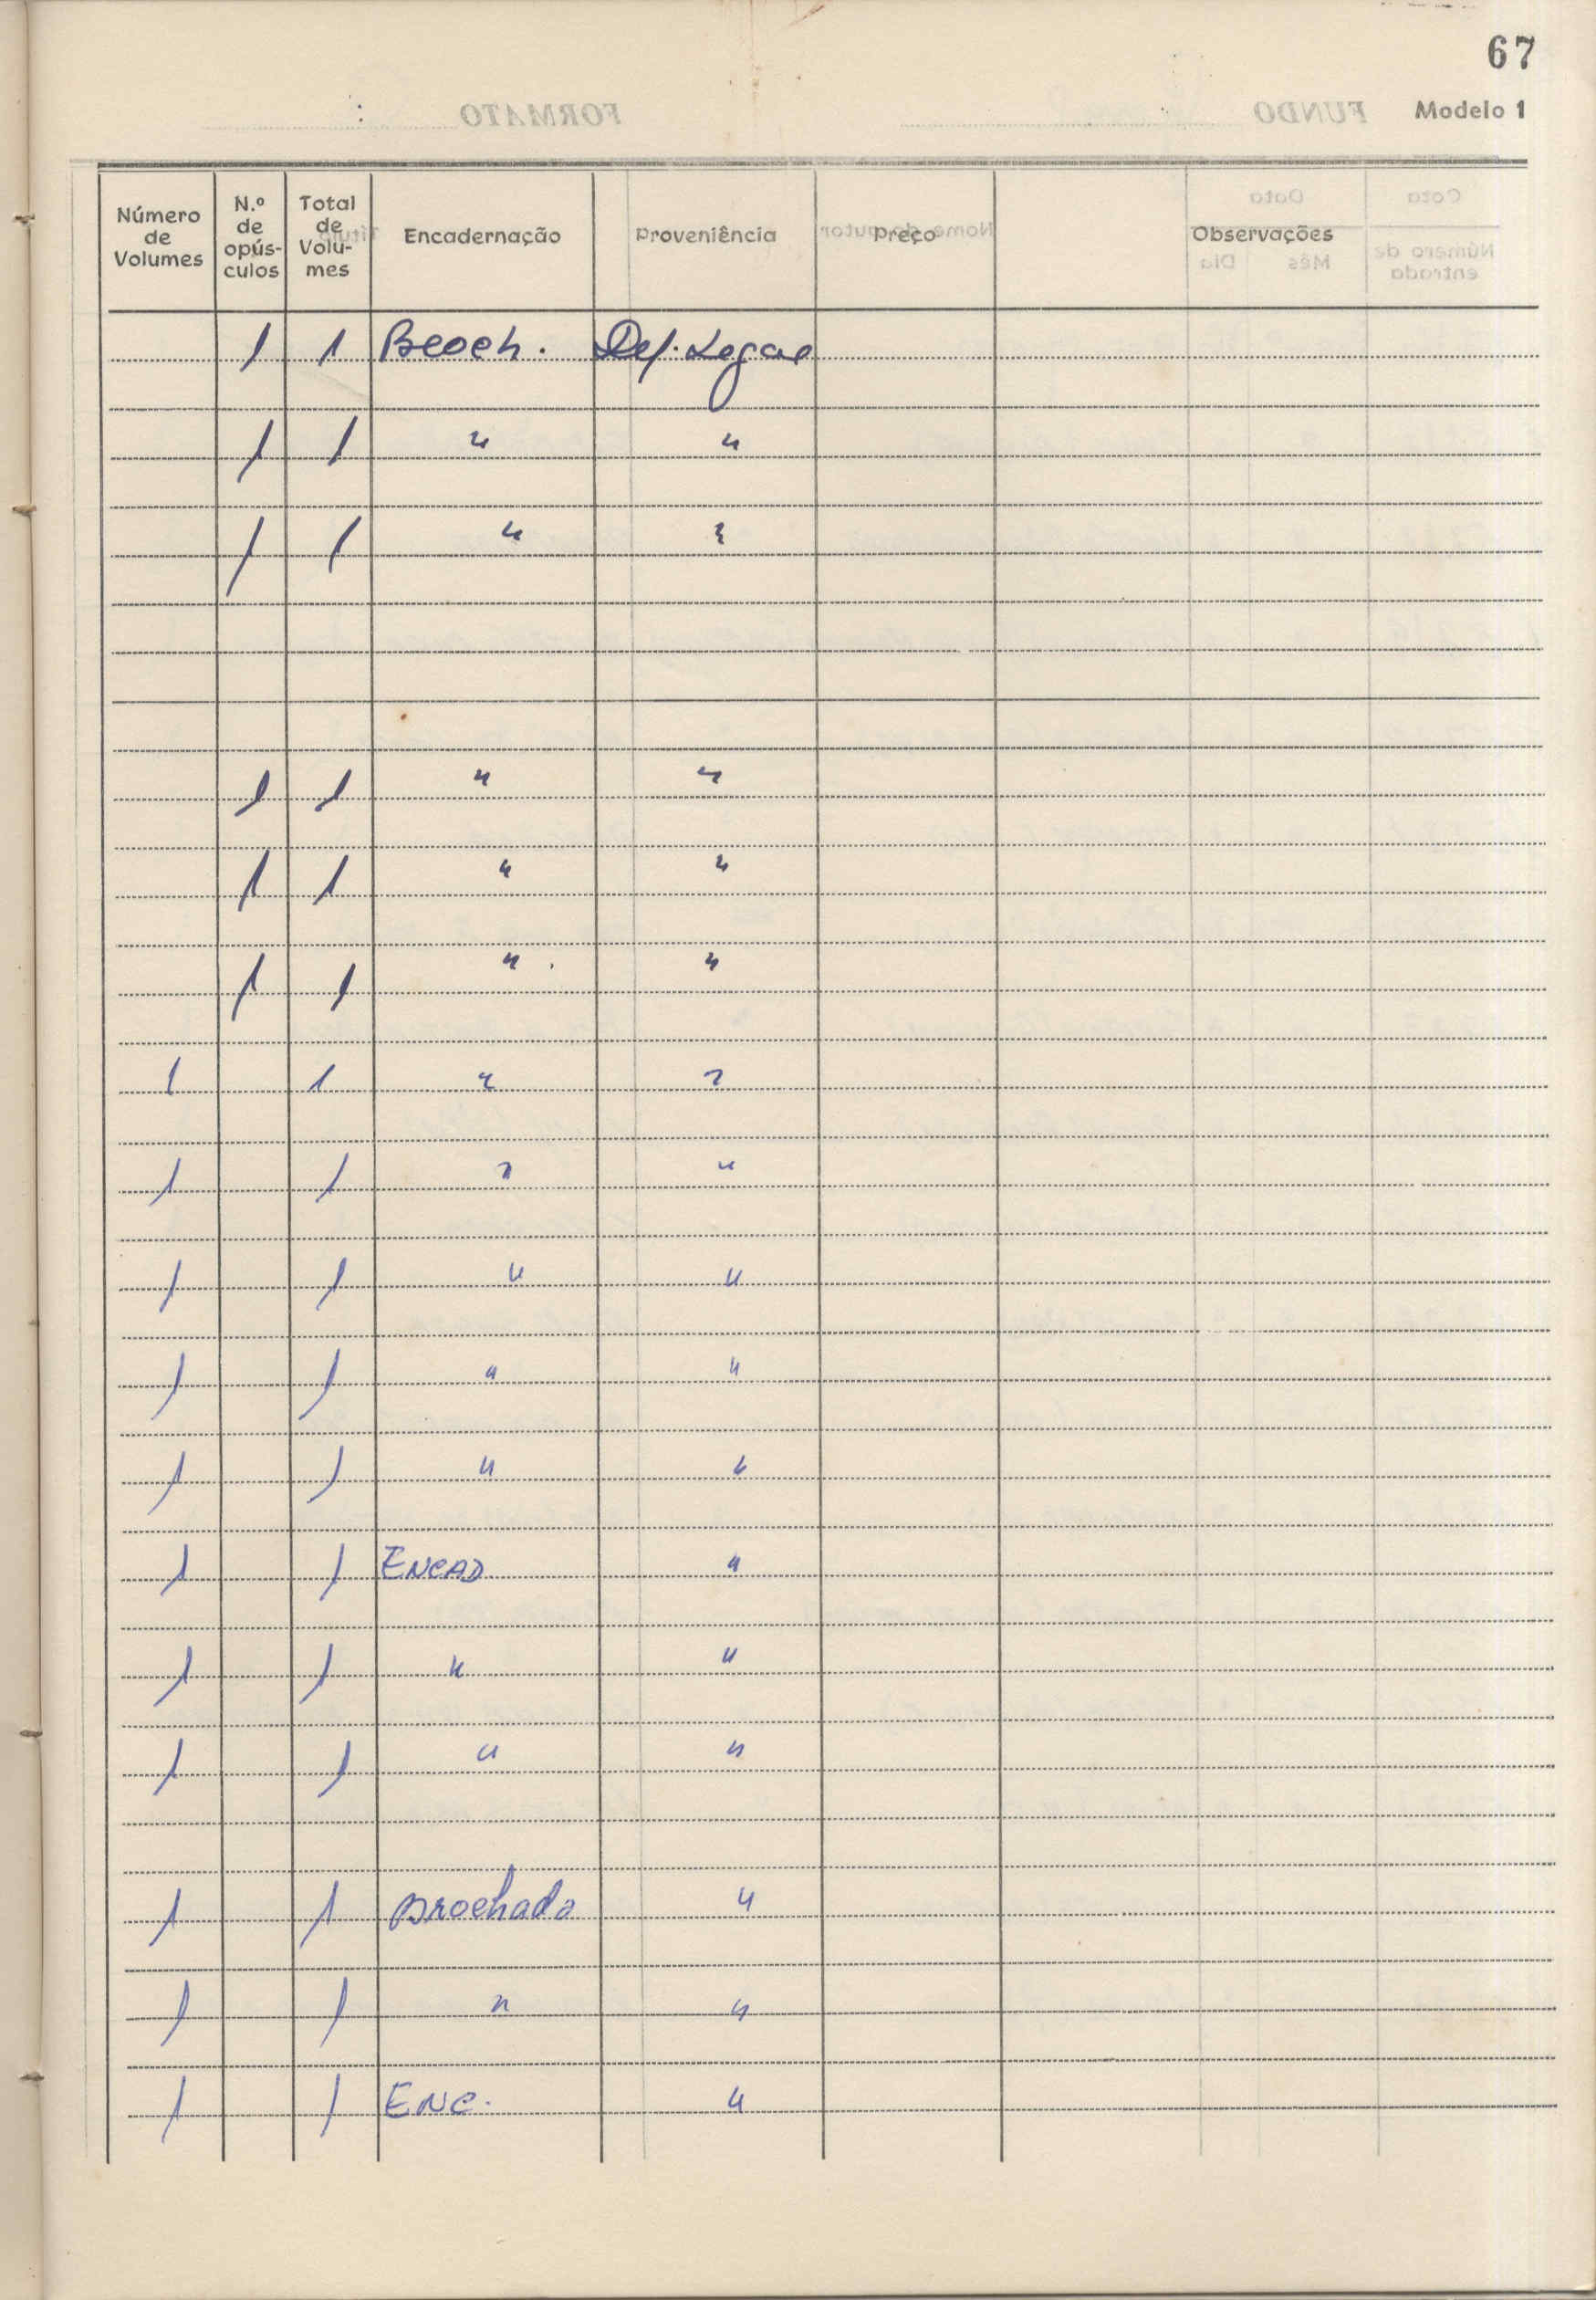 67
Modelo 1
Número de Volumes | N.º de opús-culos | Total de Volu-mes | Encadernação | Proveniência | Preço | Observações
1 1 Broch. Dep. Legal
1 1 " "
1 1 " "
1 1 " "
1 1 " "
1 1 " "
1 1 " "
1 1 " "
1 1 " "
1 1 " "
1 1 " "
1 1 ENCAD "
1 1 " "
1 1 " "
1 1 Brochado "
1 1 " "
1 1 ENC. "